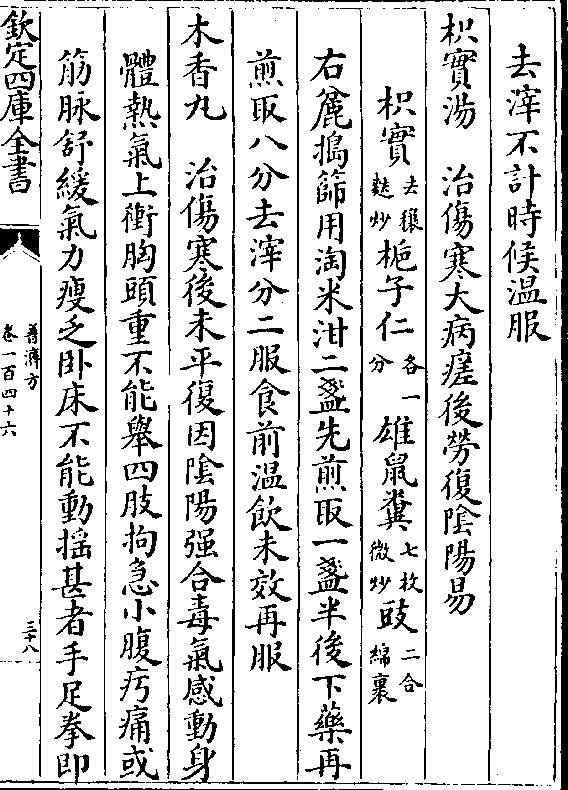 去滓不計時候温服
枳實湯　治傷寒大病瘥後勞復隂陽易
枳實去穰麩炒梔子仁各一分雄鼠糞七枚微炒豉二合綿裹
右麄搗篩用淘米泔二盞先煎取一盞半後下藥再
煎取八分去滓分二服食前温飲未效再服
木香丸　治傷寒後未平復因隂陽强合毒氣感動身
體熱氣上衝胸頭重不能舉四肢拘急小腹㽲痛或
筋脉舒緩氣力瘦乏卧床不能動揺甚者手足拳即
欽定四庫全書
普濟方
卷一百四十六
三十八